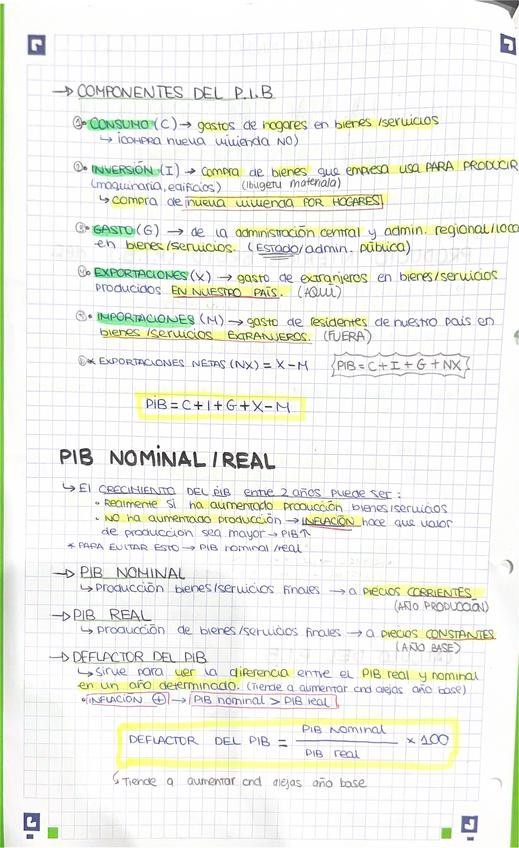 → COMPONENTES DEL P.I.B
①• CONSUMO (C) → gastos de hogares en bienes /servicios
↳ ¡COMPRA nueva vivienda NO)
②• INVERSIÓN (I) → compra de bienes que empresa usa PARA PRODUCIR
(maquinaria, edificios) (Ibigetu materiala)
↳ compra de nueva vivienda POR HOGARES
③• GASTO (G) → de la administración central y admin. regional/loca
en bienes/servicios. (ESTADO/admin. pública)
④• EXPORTACIONES (X) → gasto de extranjeros en bienes/servicios
producidos EN NUESTRO PAÍS. (AQUÍ)
⑤• IMPORTACIONES (M) → gasto de residentes de nuestro país en
bienes/servicios EXTRANJEROS. (FUERA)
⑥* EXPORTACIONES NETAS (NX) = X-M PIB = C+I+G+NX
PIB = C+I+G+X-M
PIB NOMINAL/REAL
↳ El CRECIMIENTO DEL PIB entre 2 años puede ser:
• Realmente si ha aumentado producción bienes/servicios
• NO ha aumentado producción → INFLACIÓN hace que valor
de producción sea mayor → PIB↑
* PARA EVITAR ESTO → PIB nominal/real
→ PIB NOMINAL
↳ Producción bienes/servicios finales → a precios CORRIENTES
(AÑO PRODUCCIÓN)
→ PIB REAL
↳ producción de bienes/servicios finales → a precios CONSTANTES
(AÑO BASE)
→ DEFLACTOR DEL PIB
↳ Sirve para ver la diferencia entre el PIB real y nominal
en un año determinado. (Tiende a aumentar cnd alejas año base)
• INFLACIÓN ⊕ → PIB nominal > PIB real
DEFLACTOR DEL PIB = PIB Nominal / PIB real × 100
↳ Tiende a aumentar cnd alejas año base